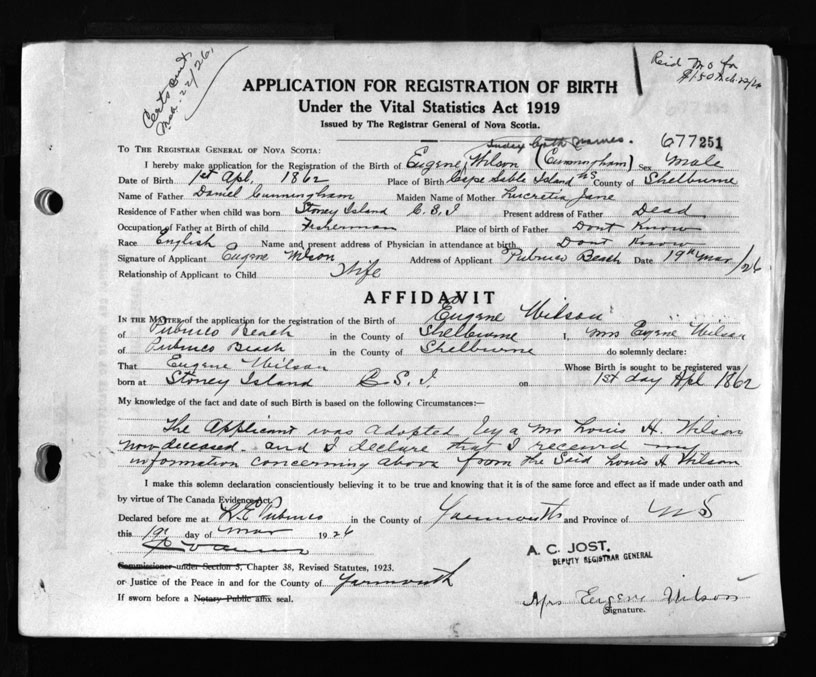 Certs sent Mar. 22/26.
Paid M O for
$1.50 Mch. 22/26
APPLICATION FOR REGISTRATION OF BIRTH
Under the Vital Statistics Act 1919
Issued by The Registrar General of Nova Scotia.
Index both names.
677251
To The Registrar General of Nova Scotia:
I hereby make application for the Registration of the Birth of Eugene Wilson (Cunningham) Sex Male
Date of Birth 1st Apl, 1862 Place of Birth Cape Sable Island NS County of Shelburne
Name of Father Daniel Cunningham Maiden Name of Mother Lucretia Jane
Residence of Father when child was born Stoney Island C. S. I Present address of Father Dead
Occupation of Father at Birth of child Fisherman Place of birth of Father Dont Know
Race English Name and present address of Physician in attendance at birth Dont Know
Signature of Applicant Eugene Wilson Address of Applicant Pubnico Beach Date 19th Mar/26
Relationship of Applicant to Child Wife
AFFIDAVIT
In the Matter of the application for the registration of the Birth of Eugene Wilson
of Pubnico Beach in the County of Shelburne I, Mrs Eugene Wilson
of Pubnico Beach in the County of Shelburne do solemnly declare:
That Eugene Wilson Whose Birth is sought to be registered was
born at Stoney Island C. S. I on 1st day Apl 1862
My knowledge of the fact and date of such Birth is based on the following Circumstances:—
The Applicant was adopted by a Mr Louis H. Wilson
now deceased. and I declare that I received my
information concerning above from the Said Louis H Wilson
I make this solemn declaration conscientiously believing it to be true and knowing that it is of the same force and effect as if made under oath and
by virtue of The Canada Evidence Act.
Declared before me at Pubnico in the County of Yarmouth and Province of N S
this 19 day of Mar 1926
Commissioner under Section 5, Chapter 38, Revised Statutes, 1923.
or Justice of the Peace in and for the County of Yarmouth
If sworn before a Notary Public affix seal.
A. C. JOST.
DEPUTY REGISTRAR GENERAL
Mrs Eugene Wilson
Signature.